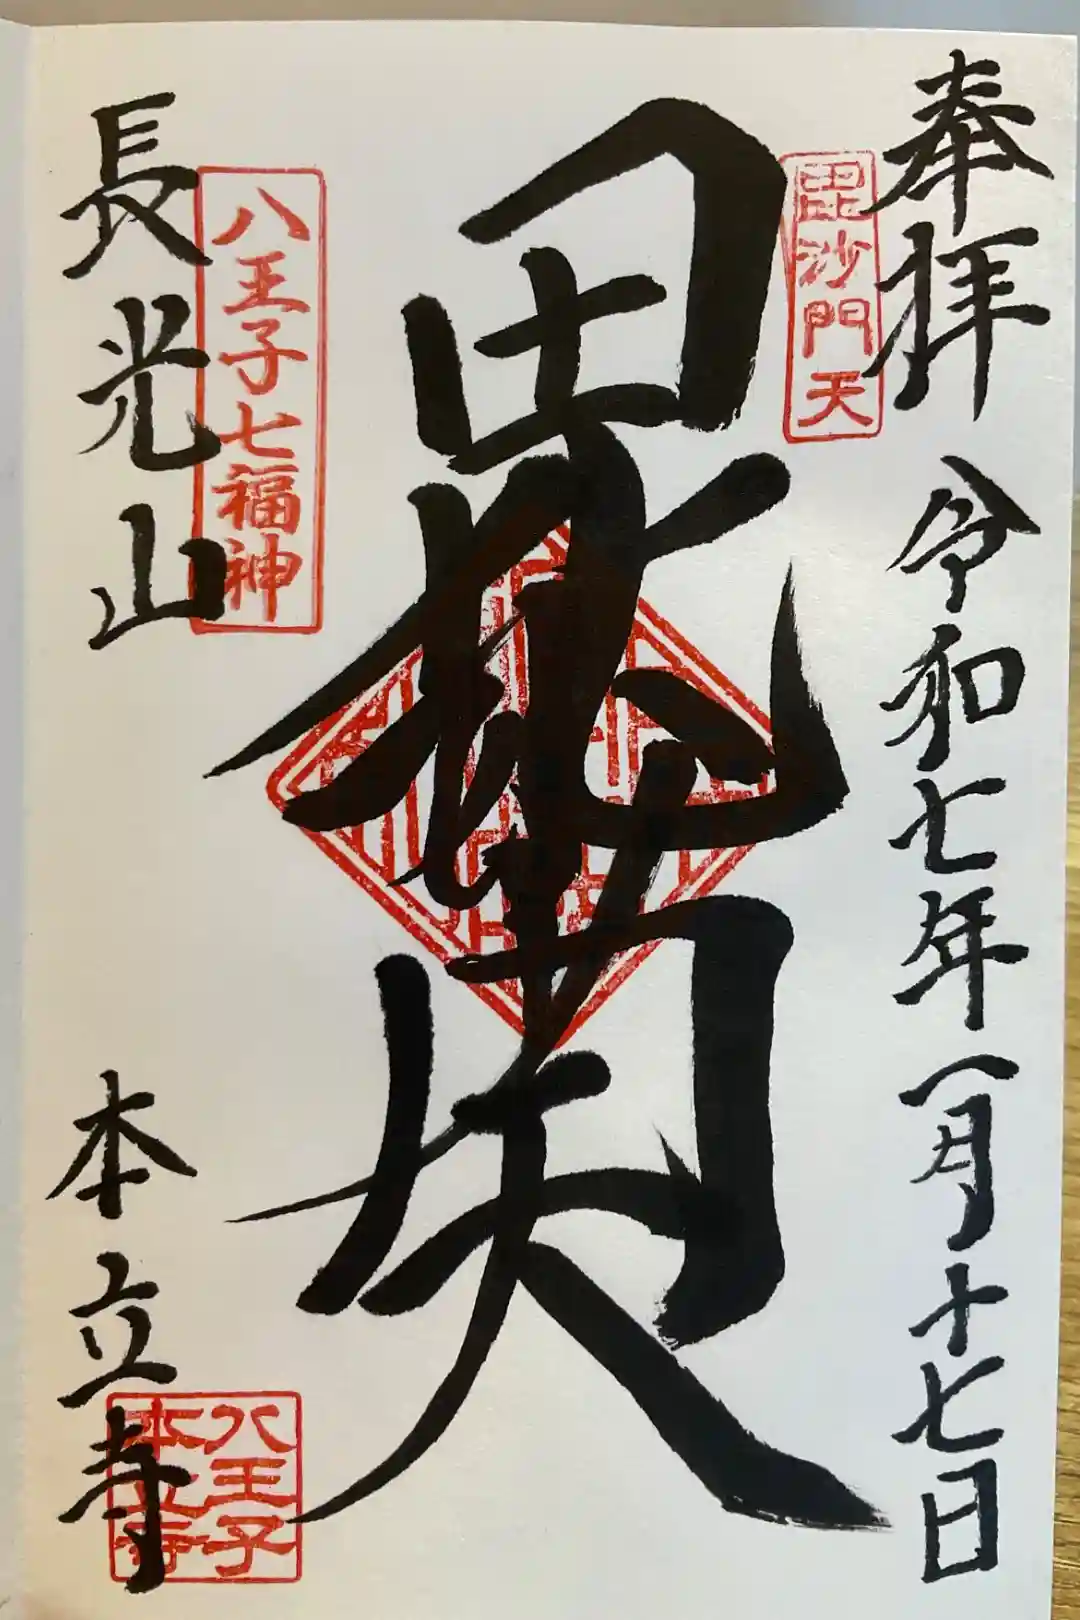 奉拝
令和七年一月十七日
毘沙門天
毘沙門天
八王子七福神
長光山
本立寺
八王子
本立寺